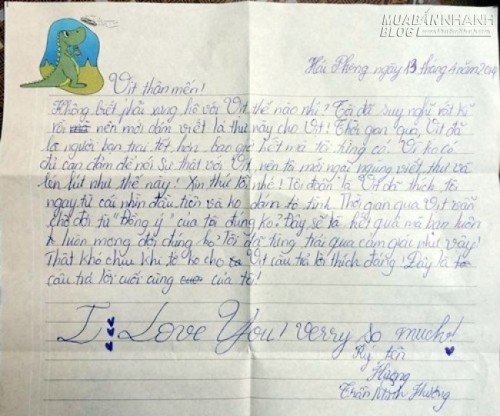 MUABÁNNHANH
BLOG
Hải Phòng ngày 13 tháng 4 năm 2014
Vịt thân mến!
Không biết phải xưng hô với Vịt thế nào nhỉ? Tớ đã suy nghĩ rất kĩ
rồi nên mới dám viết lá thư này cho Vịt! Thời gian qua, Vịt đã
là người bạn trai tốt hơn bao giờ hết mà tớ từng có. Vì ko có
đủ can đảm để nói sự thật với Vịt, nên tớ mới ngại ngùng viết thư và
lén lút như thế này! Xin thứ lỗi nhé! Tôi đoán là Vịt đã thích tôi
ngay từ cái nhìn đầu tiên và ko dám tỏ tình. Thời gian qua Vịt vẫn
chờ đợi từ "Đồng ý" của tôi đúng ko? Đây sẽ là kết quả mà bạn luôn
luôn mong đợi đúng ko? Tôi đã từng trải qua cảm giác như vậy!
Thật khó chịu khi tớ ko cho Vịt câu trả lời thích đáng! Đây là
câu trả lời cuối cùng của tớ!
I Love You! Verry so much!
Ký tên
Hương
Trần Minh Hương